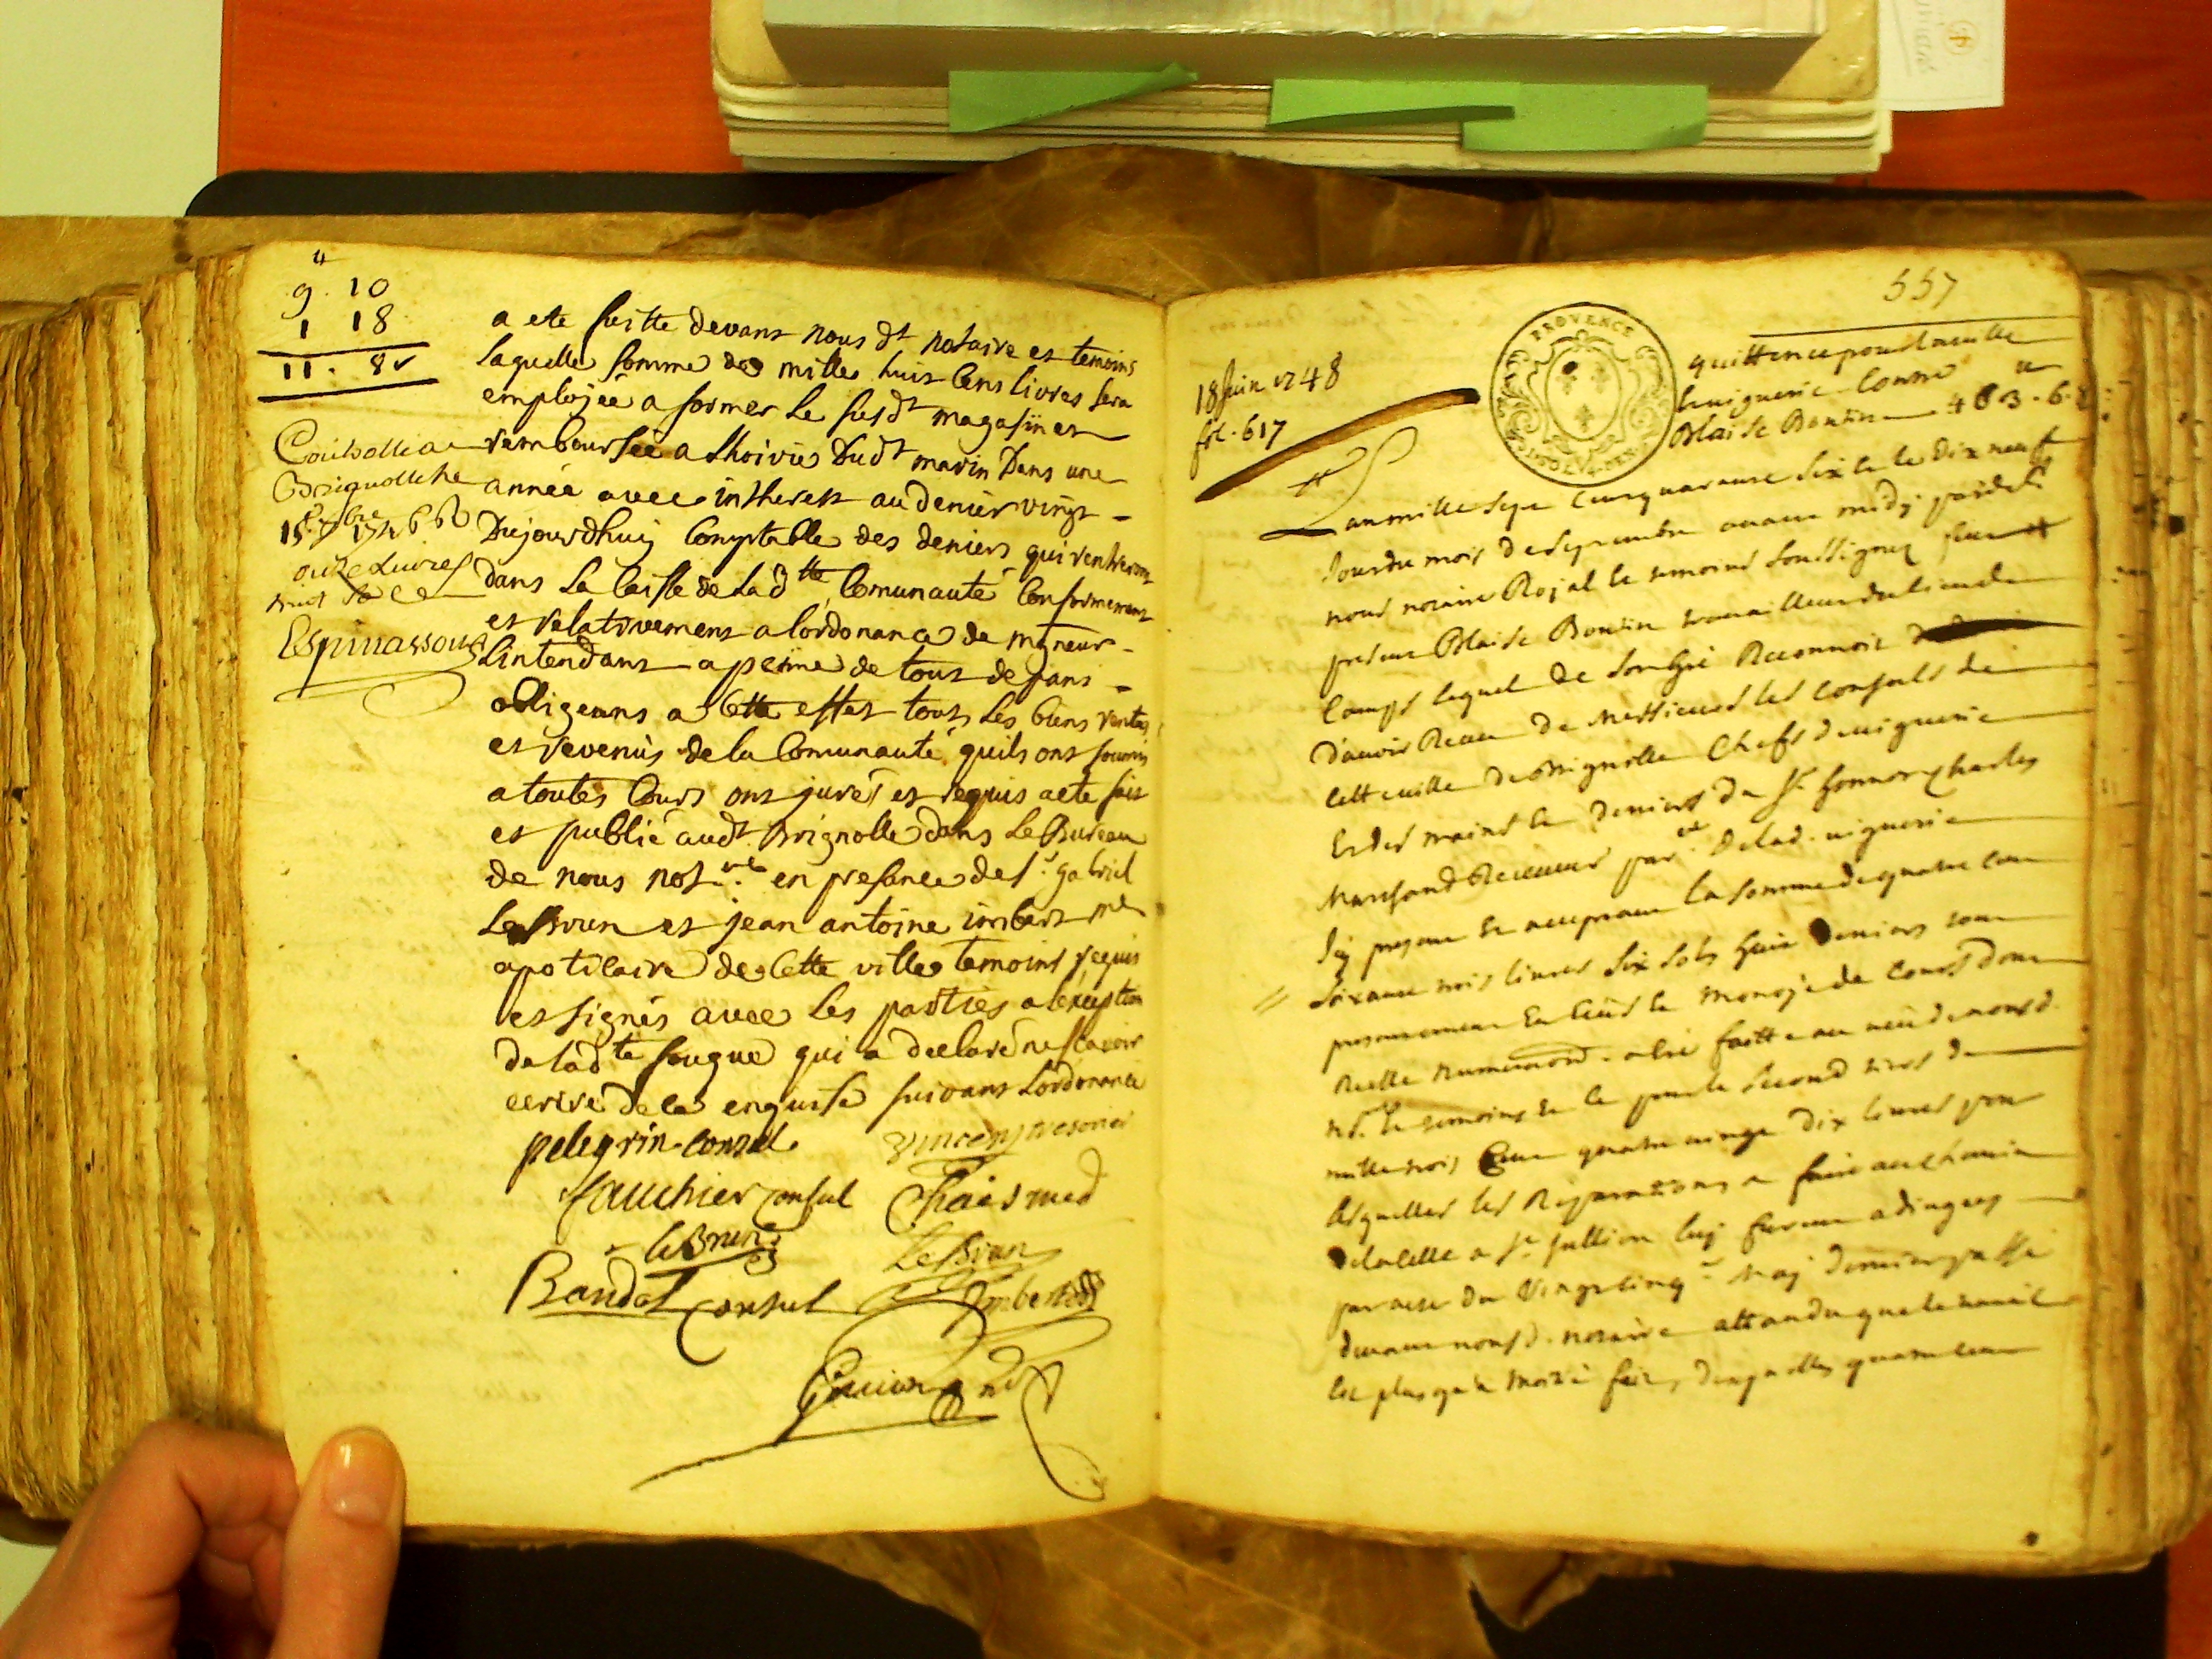 4
9. 10
1 18
11. 8
a ete faitte devant nous dt notaire et temoins
laquelle somme de mille huit cens livres sera
emploiée a former le susdt magasin et
remboursée a lhoirie dudt marin dans une
année avec intherest au denier vingt
Dujourdhuy Comptable des deniers qui rentreront
dans la Caisse de ladtte Comunauté Conformement
et relativement a lordonance de mgneur
Lintendant a peine de tous depans
obligeans a Cette effet tous les biens rentes
et revenus de la Comunauté quils ont soumis
a toutes Cours ont juré et requis acte fait
et publié audt Brignolle dans le Bureau
de nous notre en presance de sr gabriel
LeBrun et jean antoine imbert me
apoticaire de Cette ville temoins requis
et signés avec les parties a lexception
de ladte fougue qui a declaré ne scavoir
ecrire de ce enquise suivant Lordonance
Controllé a
Brignolle he
15 7bre 1746
onze Livres
huit s
Espinassous
pelegrin Consul
vincens tresorier
fauchier Consul
Chais med
leBrun
LeBrun
Baudol Consul
Imbert
Guivrand
557
PROVENCE
18 Juin 1748
fol. 617
quittence pour la ville
viguerie Contre
Blaise Boutin 463. 6. 8
Lan mille sept cens quarante six et le dix neuf
Jour du mois de Septembre avant midy pardevt
nous notaire Royal et temoins soussignez fut
present Blaise Boutin travailleur du lieu de
Camps lequel de son gré Reconnoit
Davoir Receu de Messieurs les Consuls de
Cette ville de Brignolle Chefs de viguerie
Et des mains et deniers du Sr honnoré Charles
Marchand Receveur par.er de lad. viguerie
Icy present et acceptant la somme de quatre cent
soixante trois livres six sols huit deniers tout
presentement En Ecus et monoye de Cours dont
Reelle numeration a été faitte au veu de nousd.
not. et temoins et ce pour le second tiers de
mille trois Cent quatre vingt dix livres pour
lesquelles les Reparations a faire au chemin
de la Celle a St Jullien luy furent adjugées
par acte du vingt cinq.e May dernier passé
devant nousd. notaire attandu que le travail
est plus qu'a moitié fait, desquelles quatre cent